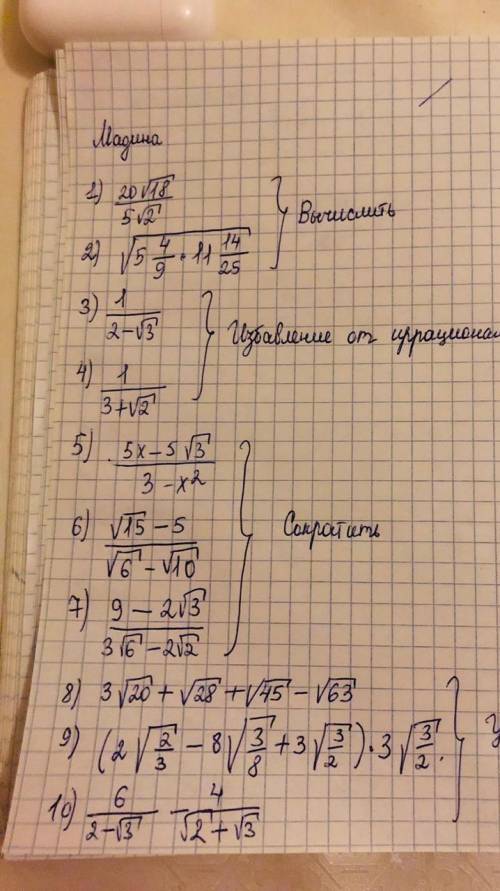 Мадина
1) 20√18 / 5√2
2) √(5 4/9 · 11 14/25)
Вычислить
3) 1 / (2-√3)
Избавление от иррационал
4) 1 / (3+√2)
5) (5x-5√3) / (3-x²)
6) (√15-5) / (√6-√10)
Сократить
7) (9-2√3) / (3√6-2√2)
8) 3√20+√28+√45-√63
9) (2√(2/3) - 8√(3/8) + 3√(3/2)) · 3√(3/2).
10) 6 / (2-√3) - 4 / (√2+√3)